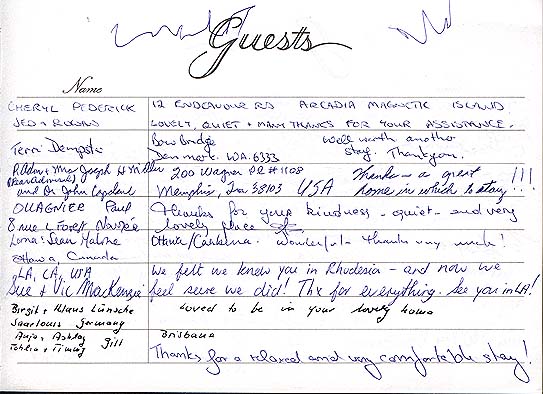 Guests
Name
CHERYL PEDERICK 12 ENDEAVOUR RD ARCADIA MAGNETIC ISLAND
JED + ROWAN LOVELY, QUIET + MANY THANKS FOR YOUR ASSISTANCE.
Terri Dempster Bow Bridge Well worth another
Denmark. WA. 6333 stay. Thankyou.
R. Adm + Mrs Joseph H Miller 200 Wagner PL #1108 Thanks - a great !!!
(Rear Admiral) and Dr John Copeland Memphis, Tn 38103 USA home in which to stay
OUAGNIER Paul Thanks for your kindness - quiet - and very
8 rue L Forest Nouméa lovely place
Lorna + Jean Malone Ottawa/Canberra. Wonderful - thank you very much!
Ottawa Canada
LA, CA, USA We felt we knew you in Rhodesia - and now we
Sue + Vic MacKenzie feel sure we did! Thx for everything. See you in LA!
Birgit + Klaus Lünsche loved to be in your lovely home
Saarlouis Germany
Anja + Ashley Gill Brisbane
+ Timmy Thanks for a relaxed and very comfortable stay!